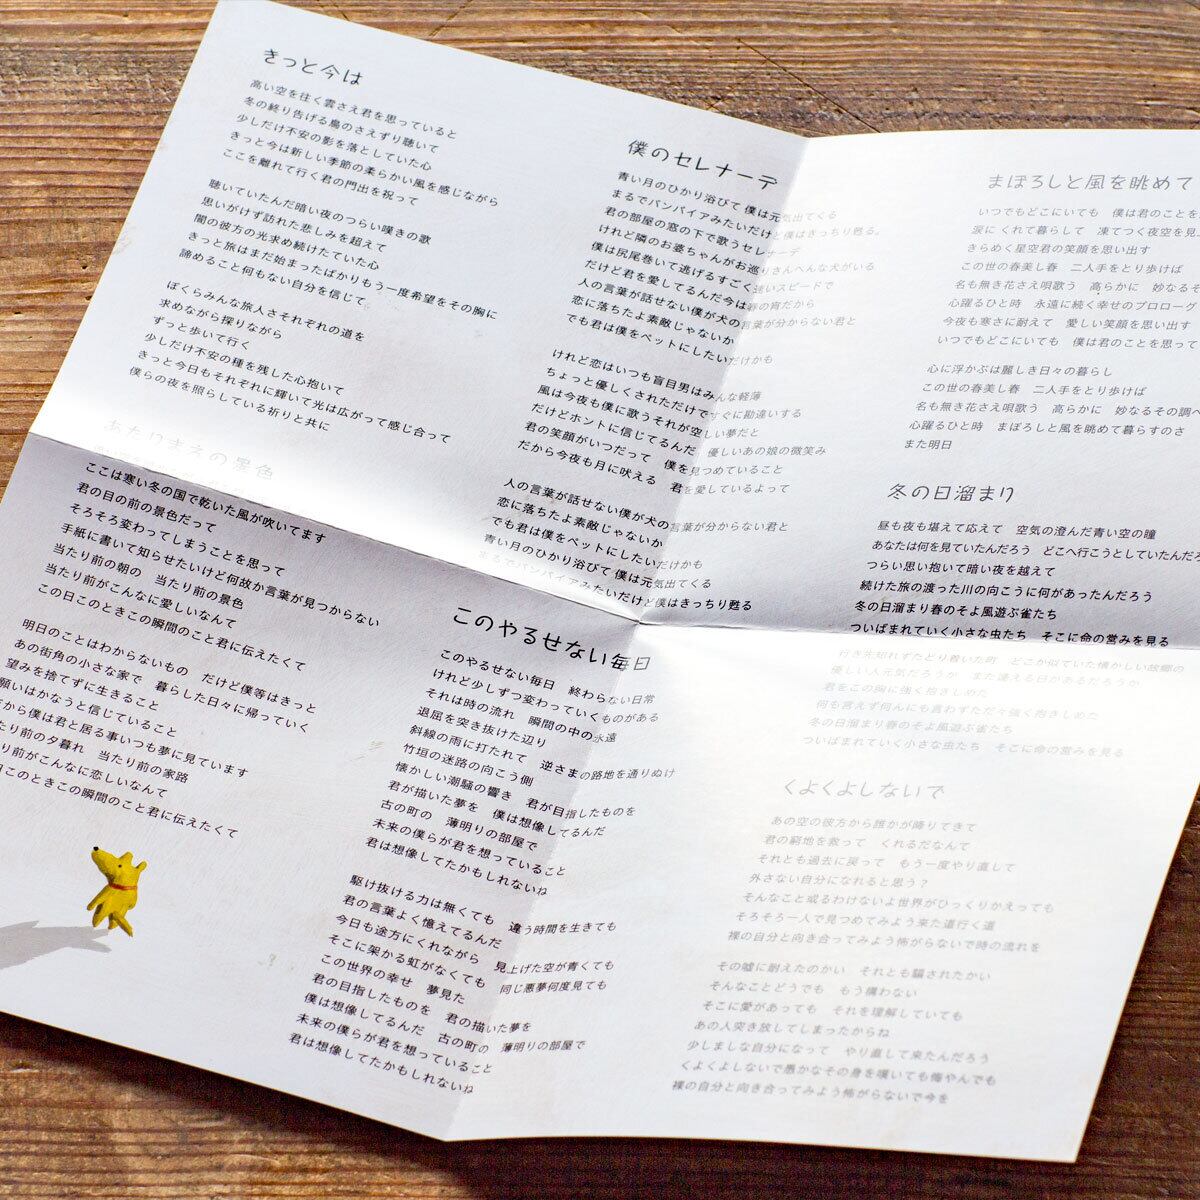 きっと今は
高い空を往く雲さえ君を思っていると
冬の終り告げる鳥のさえずり聴いて
少しだけ不安の影を落としていた心
きっと今は新しい季節の柔らかい風を感じながら
ここを離れて行く君の門出を祝って
聴いていたんだ暗い夜のつらい嘆きの歌
思いがけず訪れた悲しみを超えて
闇の彼方の光求め続けていた心
きっと旅はまだ始まったばかりもう一度希望をその胸に
諦めること何もない自分を信じて
ぼくらみんな旅人さそれぞれの道を
求めながら探りながら
ずっと歩いて行く
少しだけ不安の種を残した心抱いて
きっと今日もそれぞれに輝いて光は広がって感じ合って
僕らの夜を照らしている祈りと共に
あたりまえの景色
ここは寒い冬の国で乾いた風が吹いてます
君の目の前の景色だって
そろそろ変わってしまうことを思って
手紙に書いて知らせたいけど何故か言葉が見つからない
当たり前の朝の　当たり前の景色
当たり前がこんなに愛しいなんて
この日このときこの瞬間のこと君に伝えたくて
明日のことはわからないもの　だけど僕等はきっと
あの街角の小さな家で　暮らした日々に帰っていく
望みを捨てずに生きること
願いはかなうと信じていること
から僕は君と居る事いつも夢に見ています
たり前の夕暮れ　当たり前の家路
り前がこんなに恋しいなんて
日このときこの瞬間のこと君に伝えたくて
僕のセレナーデ
青い月のひかり浴びて 僕は元気出てくる
まるでバンパイアみたいだけど僕はきっちり甦る。
君の部屋の窓の下で歌うセレナーデ
けれど隣のお婆ちゃんがお巡りさんへんな犬がいる
僕は尻尾巻いて逃げるすごく強いスピードで
だけど君を愛してるんだ今は春の宵だから
人の言葉が話せない僕が犬の言葉が分からない君と
恋に落ちたよ素敵じゃないか
でも君は僕をペットにしたいだけかも
けれど恋はいつも盲目男はみんな軽薄
ちょっと優しくされただけですぐに勘違いする
風は今夜も僕に歌うそれが空しい夢だと
だけどホントに信じてるんだ　優しいあの娘の微笑み
君の笑顔がいつだって　僕を見つめていること
だから今夜も月に吠える　君を愛しているよって
人の言葉が話せない僕が犬の言葉が分からない君と
恋に落ちたよ素敵じゃないか
でも君は僕をペットにしたいだけかも
青い月のひかり浴びて 僕は元気出てくる
まるでバンパイアみたいだけど僕はきっちり甦る
このやるせない毎日
このやるせない毎日　終わらない日常
けれど少しずつ変わっていくものがある
それは時の流れ　瞬間の中の永遠
退屈を突き抜けた辺り
斜線の雨に打たれて　逆さまの路地を通りぬけ
竹垣の迷路の向こう側
懐かしい潮騒の響き　君が目指したものを
君が描いた夢を　僕は想像してるんだ
古の町の　薄明りの部屋で
未来の僕らが君を想っていること
君は想像してたかもしれないね
駆け抜ける力は無くても　違う時間を生きても
君の言葉よく憶えてるんだ
今日も途方にくれながら　見上げた空が青くても
そこに架かる虹がなくても　同じ悪夢何度見ても
この世界の幸せ　夢見た
君の目指したものを　君の描いた夢を
僕は想像してるんだ　古の町の　薄明りの部屋で
未来の僕らが君を想っていること
君は想像してたかもしれないね
まぼろしと風を眺めて
いつでもどこにいても　僕は君のことを
涙に くれて暮らして　凍てつく夜空を見
きらめく星空君の笑顔を思い出す
この世の春美し春　二人手をとり歩けば
名も無き花さえ唄歌う　高らかに　妙なるそ
心躍るひと時　永遠に続く幸せのプロローグ
今夜も寒さに耐えて　愛しい笑顔を思い出す
いつでもどこにいても　僕は君のことを思って
心に浮かぶは麗しき日々の暮らし
この世の春美し春　二人手をとり歩けば
名も無き花さえ唄歌う　高らかに　妙なるその調べ
心躍るひと時　まぼろしと風を眺めて暮らすのさ
また明日
冬の日溜まり
昼も夜も堪えて応えて　空気の澄んだ青い空の瞳
あなたは何を見ていたんだろう　どこへ行こうとしていたんだろ
つらい思い抱いて暗い夜を越えて
続けた旅の渡った川の向こうに何があったんだろう
冬の日溜まり春のそよ風遊ぶ雀たち
ついばまれていく小さな虫たち　そこに命の営みを見る
行き先知れずたどり着いた町　どこか似ていた懐かしい故郷の
優しい人元気だろうか　また逢える日があるだろうか
君をこの胸に強く抱きしめた
何も言えず何んにも言わずただ々強く抱きしめた
冬の日溜まり春のそよ風遊ぶ雀たち
ついばまれていく小さな虫たち　そこに命の営みを見る
くよくよしないで
あの空の彼方から誰かが降りてきて
君の窮地を救って　くれるだなんて
それとも過去に戻って　もう一度やり直して
外さない自分になれると思う？
そんなこと或るわけないよ世界がひっくりかえっても
そろそろ一人で見つめてみよう来た道行く道
裸の自分と向き合ってみよう怖がらないで時の流れを
その嘘に耐えたのかい　それとも騙されたかい
そんなことどうでも　もう構わない
そこに愛があっても　それを理解していても
あの人突き放してしまったからね
少しましな自分になって　やり直して来たんだろう
くよくよしないで愚かなその身を嘆いても悔やんでも
裸の自分と向き合ってみよう怖がらないで今を